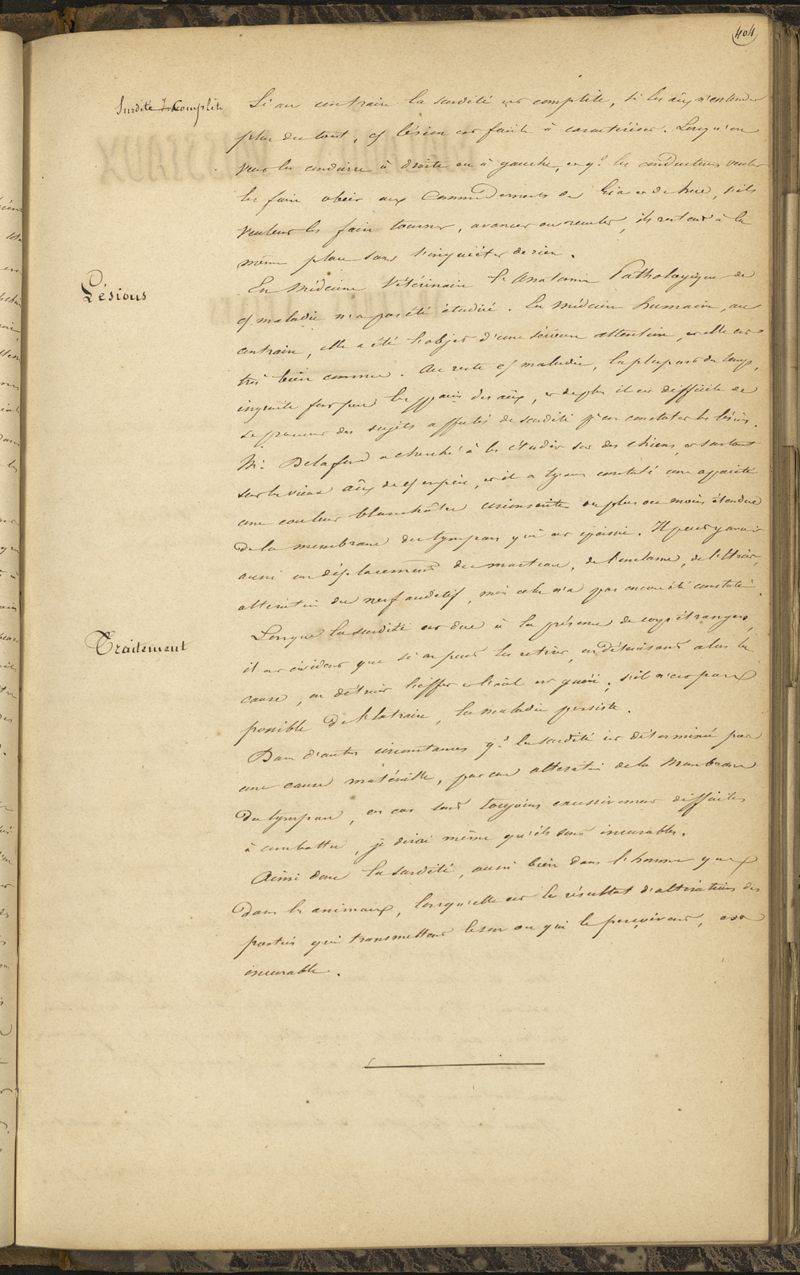 404
Surdité Complète
Si au contraire la surdité est complète, si les aux n'entendent
plus du tout, c/ lésion est facile à caractériser. Lorsqu'on
veut les conduire à droite ou à gauche, et qd les conducteurs veulent
les faire obéir aux Commandements de hia et de hue, s'ils
veulent les faire tourner, avancer ou reculer, ils restent à la
même place sans s'inquiéter de rien.
Lésions
En Médecine Vétérinaire l'Anatomie Pathologique de
c/ maladie n'a pas été étudiée. En Médecine humaine, au
contraire, elle a été l'objet d'une sérieuse attention, et elle est
très bien connue. Au reste c/ maladie, la plupart du temps,
inquiète fort peu les ppaires des aux, et de plus il est difficile de
se procurer des sujets affectés de surdité pr en constater les lésions.
Mr. Delafond a cherché à les étudier sur des chiens, et surtout
sur les vieux aux de c/ espèce, et il a tjours constaté une opacité
une couleur blanchâtre ou plus ou moins étendue
de la membrane du tympan qui est épaissie. Il peut y avoir
aussi un déplacement du marteau, de l'enclume, de l'étrier,
altération du nerf auditif, mais cela n'a pas encore été constaté.
Traitement
Lorsque la surdité est due à la présence de corps étrangers,
il est évident que si on peut les retirer, en détruisant alors la
cause, on détruit l'effet et l'aal est guéri; s'il n'est pas
possible de l'extraire, la maladie persiste.
Dans d'autres circonstances qd la surdité est déterminée par
une cause matérielle, par une altération de la Membrane
du tympan, ces cas sont toujours excessivement difficiles
à combattre, je dirai même qu'ils sont incurables.
Ainsi donc la surdité, aussi bien dans l'homme que
dans les animaux, lorsqu'elle est le résultat d'altérations des
parties qui transmettent le son ou qui le perçoivent, est
incurable.